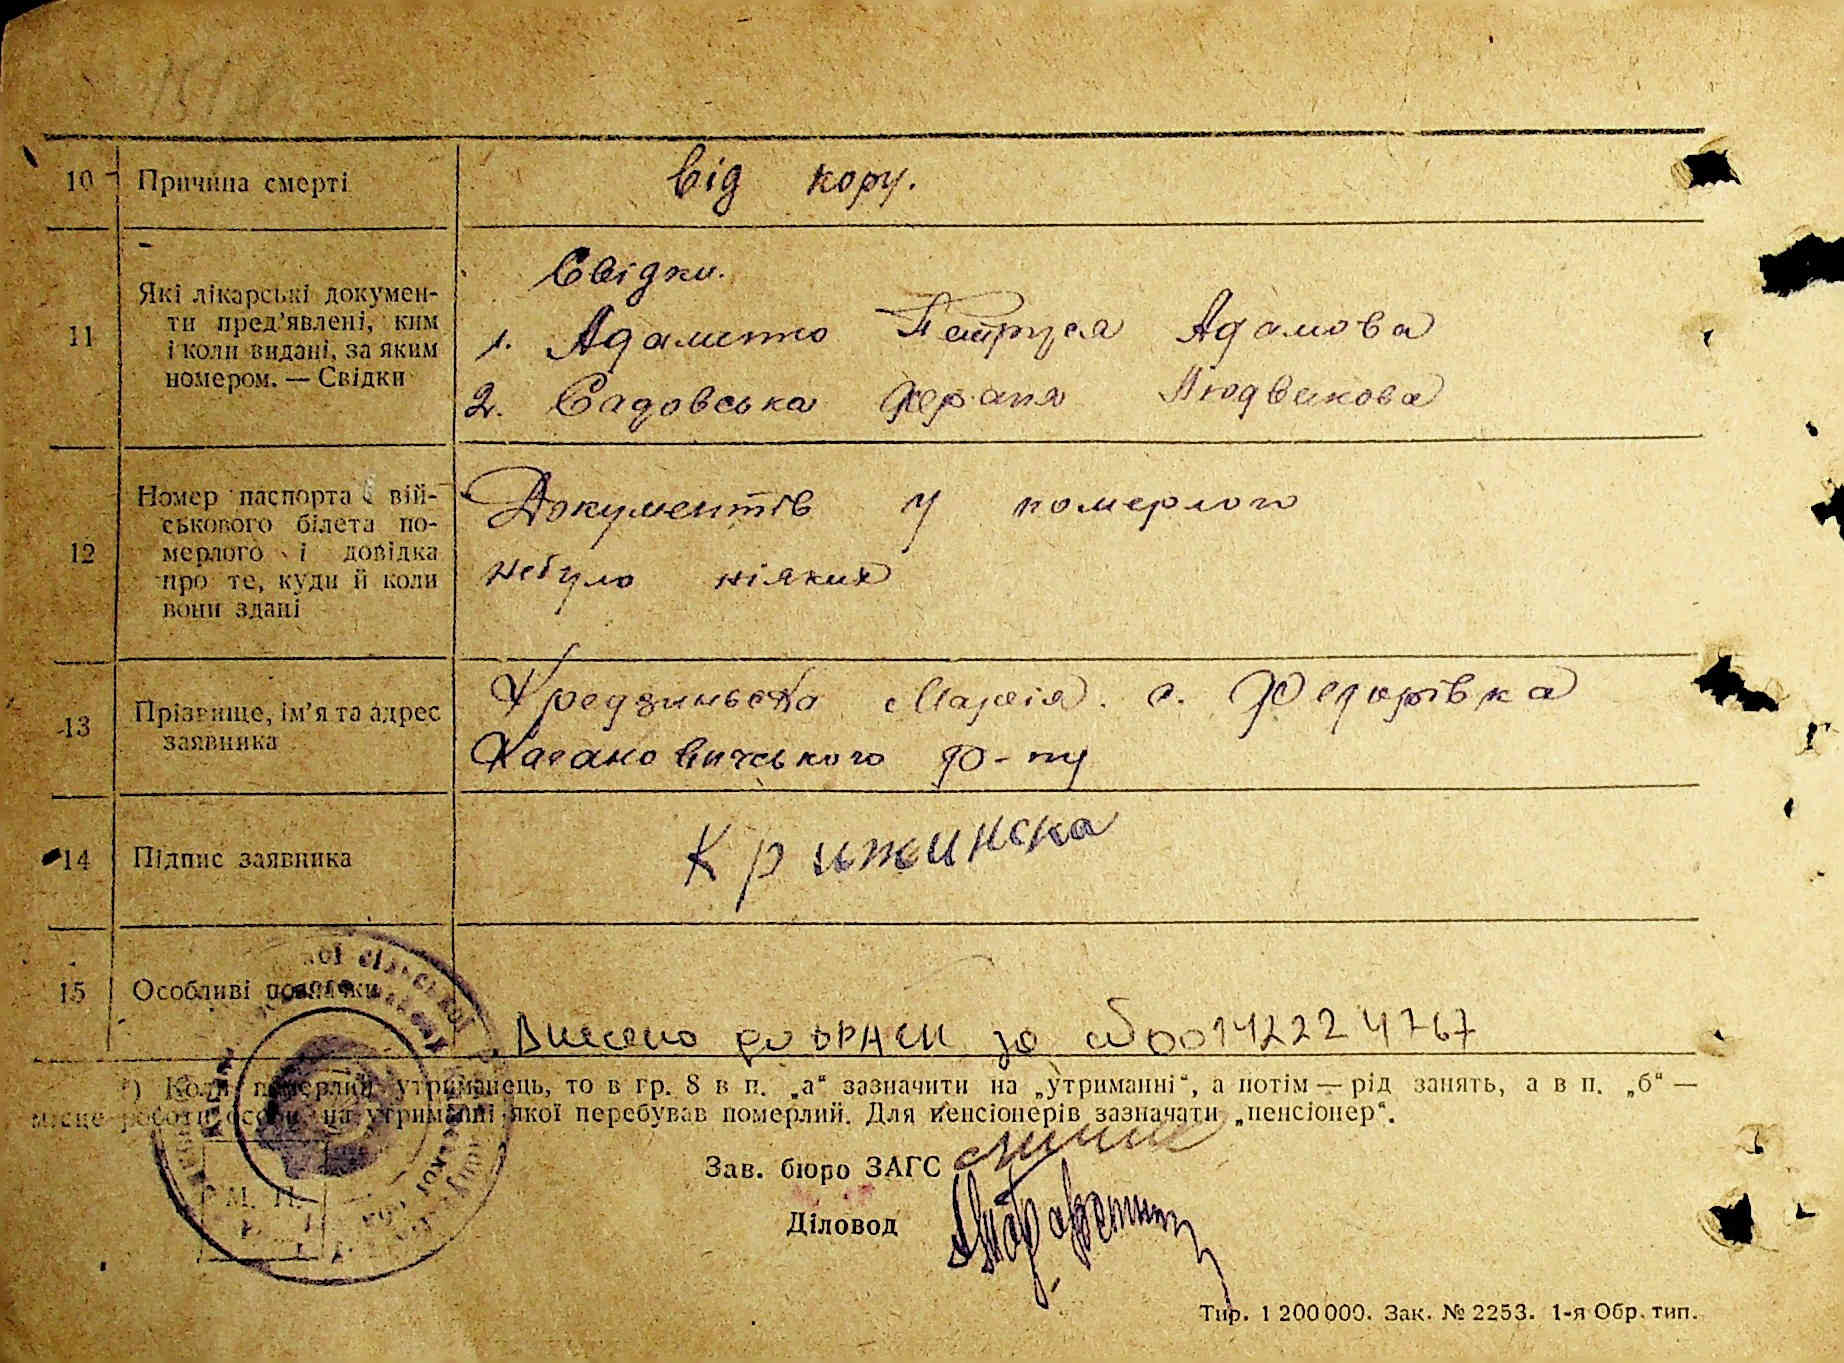 10 Причина смерті
від кору.
11 Які лікарські докумен-
ти пред’явлені, ким
і коли видані, за яким
номером. — Свідки
Свідки.
1. Адаменко Петруся Адамова
2. Садовська Людвикова
12 Номер паспорта і вій-
ськового білета по-
мерлого і довідка
про те, куди й коли
вони здані
Документів у померлого
небуло ніяких
13 Прізвище, ім’я та адрес
заявника
Марія. с. Федорівка
Кагановичського р-ну
14 Підпис заявника
Крижинска
15 Особливі позначки
Внесено до ДРАЦС за 00142224767
*) Коли померлий утриманець, то в гр. 8 в п. „а“ зазначити на „утриманні“, а потім — рід занять, а в п. „б“ —
місце роботи особи, на утриманні якої перебував померлий. Для пенсіонерів зазначати „пенсіонер“.
Зав. бюро ЗАГС
Діловод
М. П.
Тир. 1 200 000. Зак. № 2253. 1-я Обр. тип.